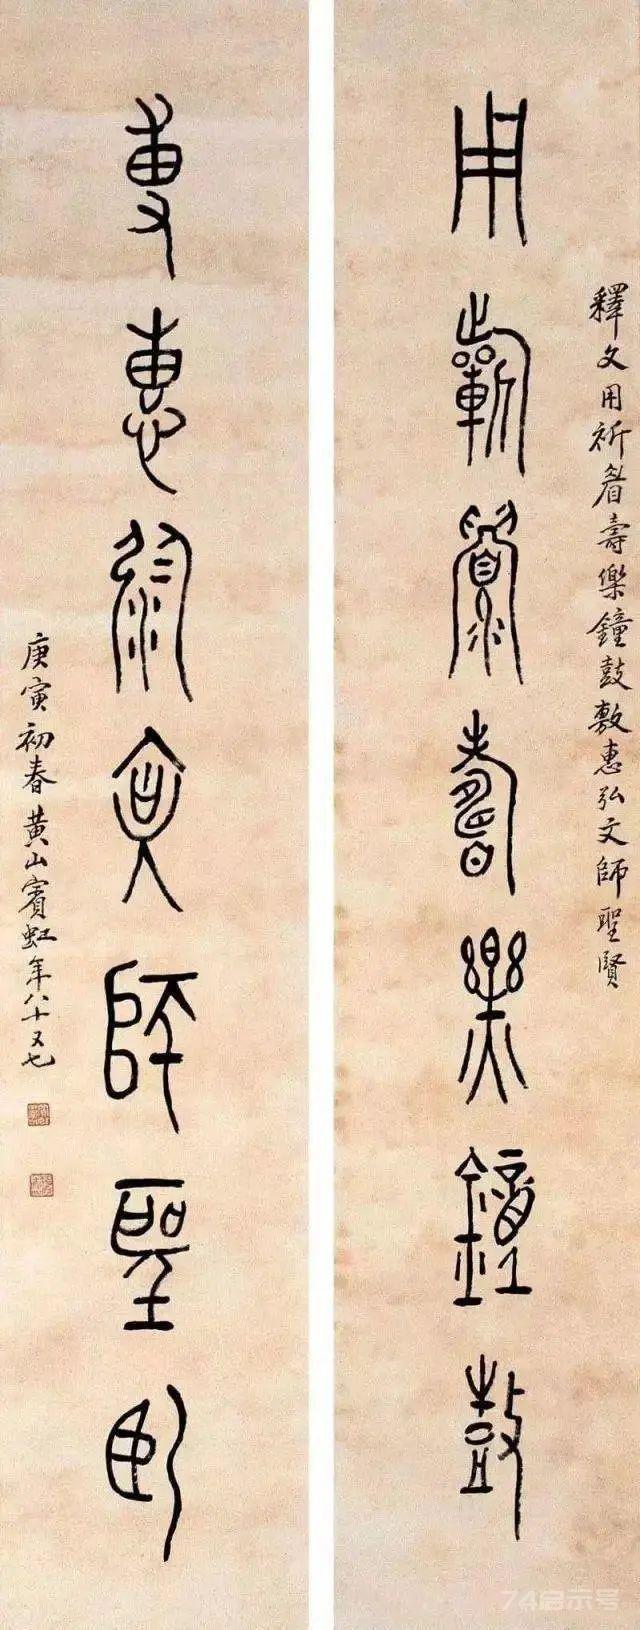 釋文用祈眉壽樂鐘鼓敷惠弘文師聖賢
用祈眉壽樂鐘鼓
敷惠弘文師聖賢
庚寅初春黃山賓虹年八十又七
74启示号